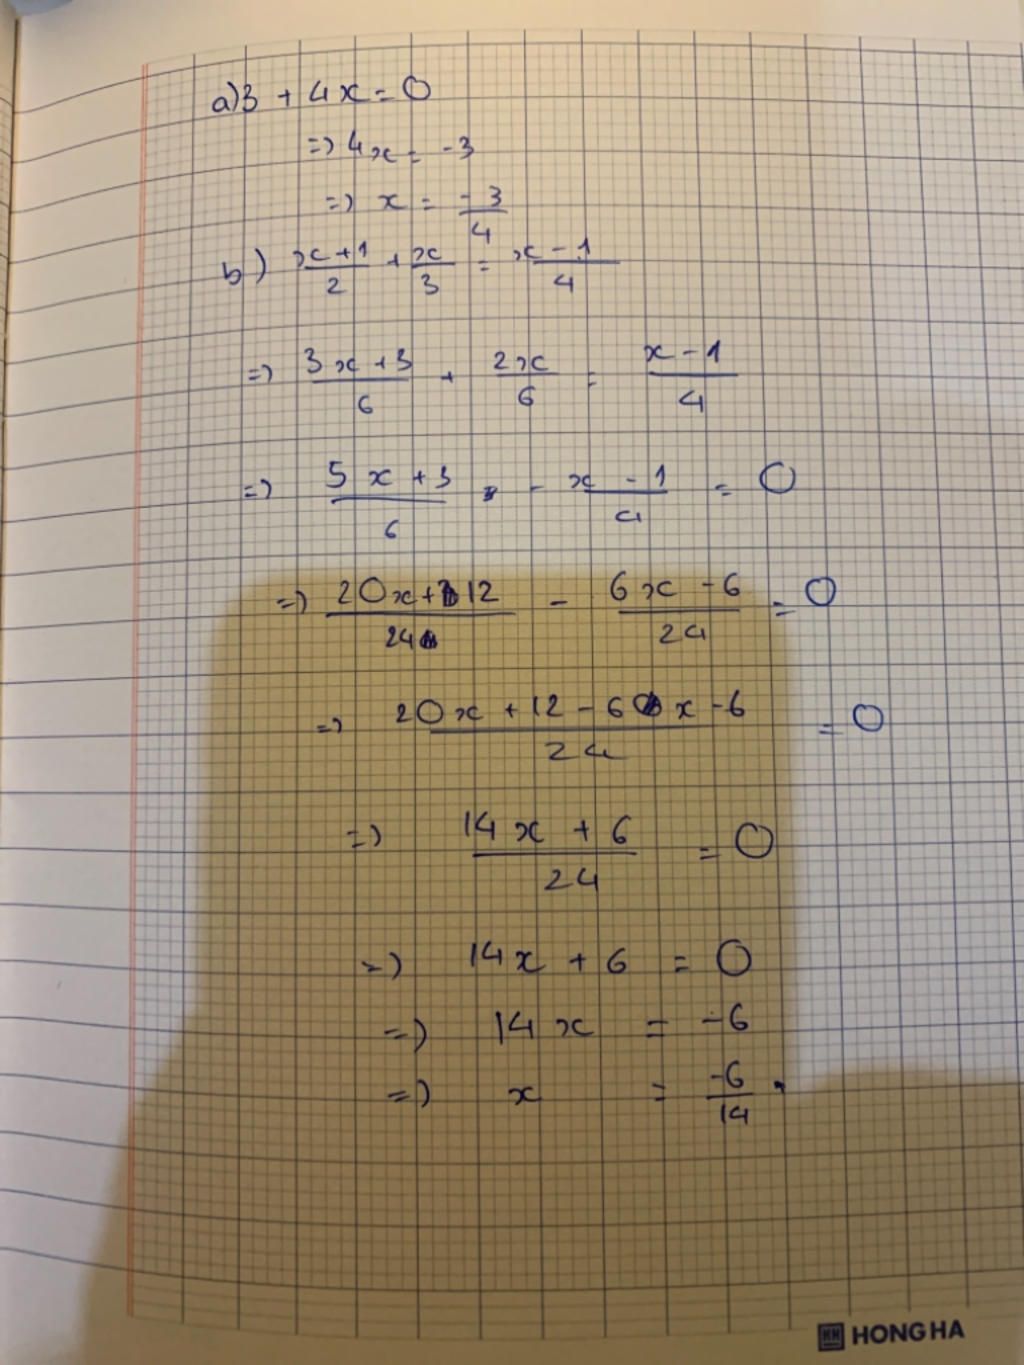 a) 3 + 4x = 0
=> 4x = -3
=> x = -3/4
b) x+1/2 + x/3 = x-1/4
=> 3x+3/6 + 2x/6 = x-1/4
=> 5x+3/6 - x-1/4 = 0
=> 20x+12/24 - 6x-6/24 = 0
=> 20x+12-6x-6/24 = 0
=> 14x+6/24 = 0
=> 14x + 6 = 0
=> 14x = -6
=> x = -6/14.
HH HONG HA